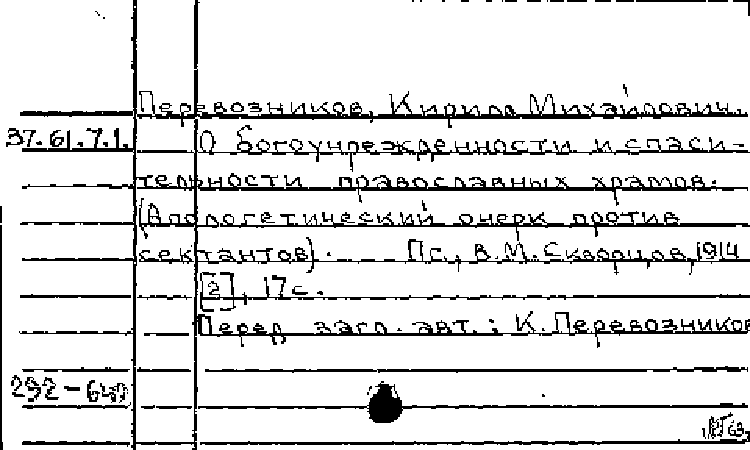 Перевозников, Кирилл Михайлович.
37.61.7.1. О богоучрежденности и спаси-
тельности православных храмов.
(Апологетический очерк против
сектантов). — Пг., В.М. Скворцов, 1914
[2], 17 с.
Перед загл. авт.: К. Перевозников
292-640